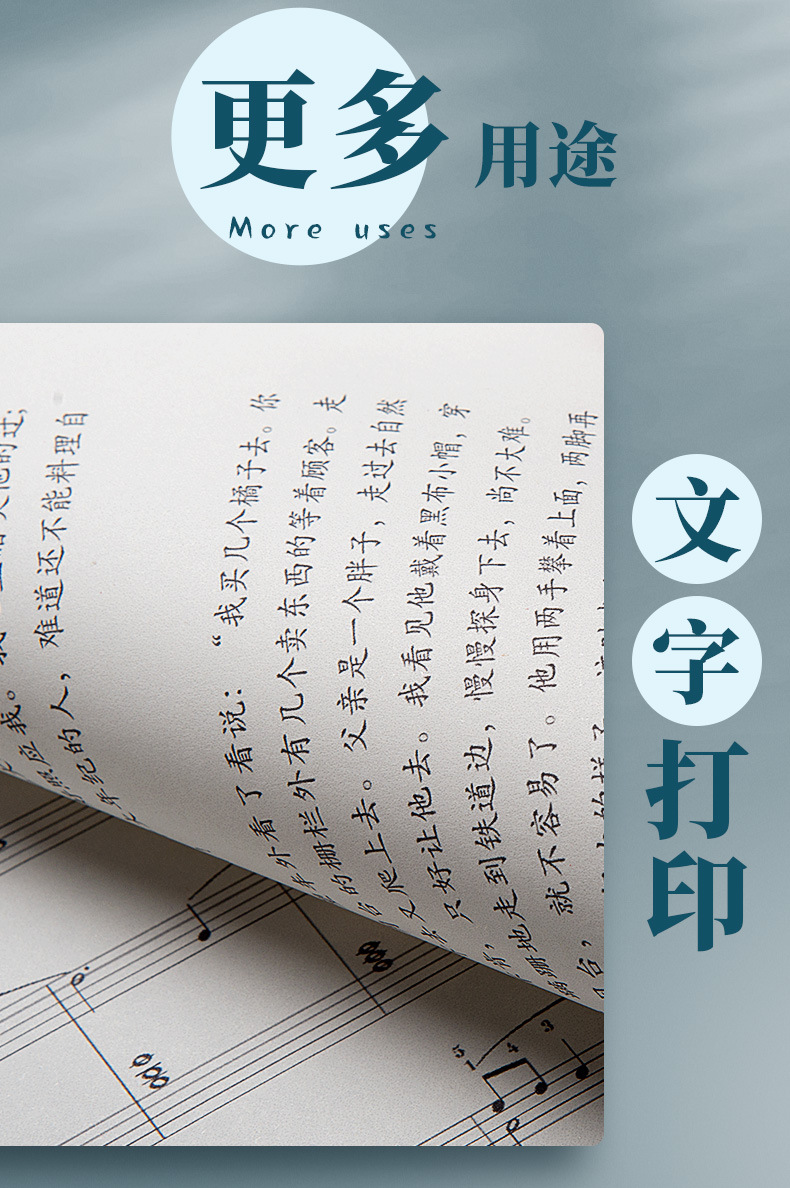 更多用途
More uses
文字打印
难道还不能料理自
我看了看说：“我买几个橘子去。你
外看了
的栅栏外有几个卖东西的等着顾客。走
爬上去。父亲是一个胖子，走过去自然
只好让他去。我看见他戴着黑布小帽，穿
地走到铁道边，慢慢探身下去，尚不大难。
就不容易了。他用两手攀着上面，两脚再